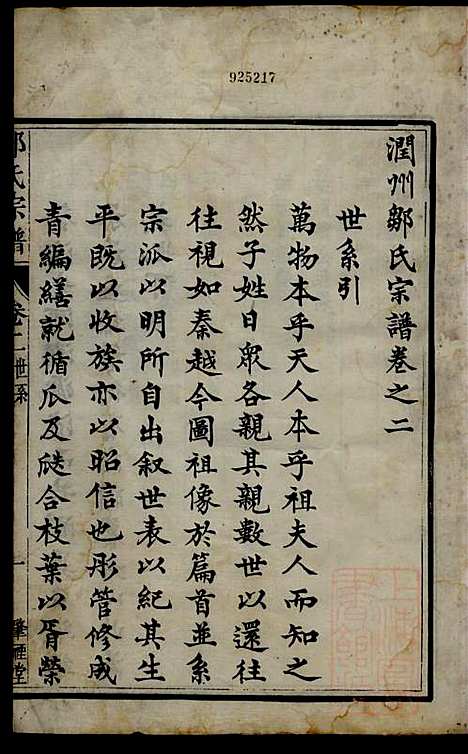 925217
潤州鄒氏宗譜卷之二
世系引
萬物本乎天人本乎祖夫人而知之
然子姓日衆各親其親數世以還往
往視如秦越今圖祖像於篇首並系
宗派以明所自出叙世表以紀其生
平既以收族亦以昭信也彤管修成
青編繕就循瓜及瓞合枝葉以胥榮
鄒氏宗譜
卷之二世系
一
肇禋堂